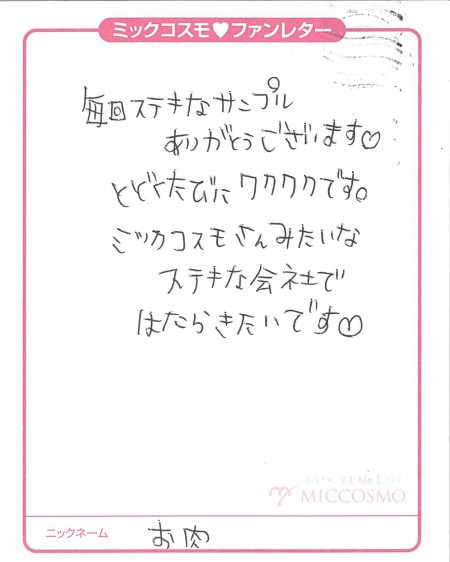 ミックコスモ♥ファンレター
毎回ステキなサンプル
ありがとうございます♡
とどくたびにワクワクです。
ミックコスモさんみたいな
ステキな会社で
はたらきたいです♡
MICCOSMO
ニックネーム お肉